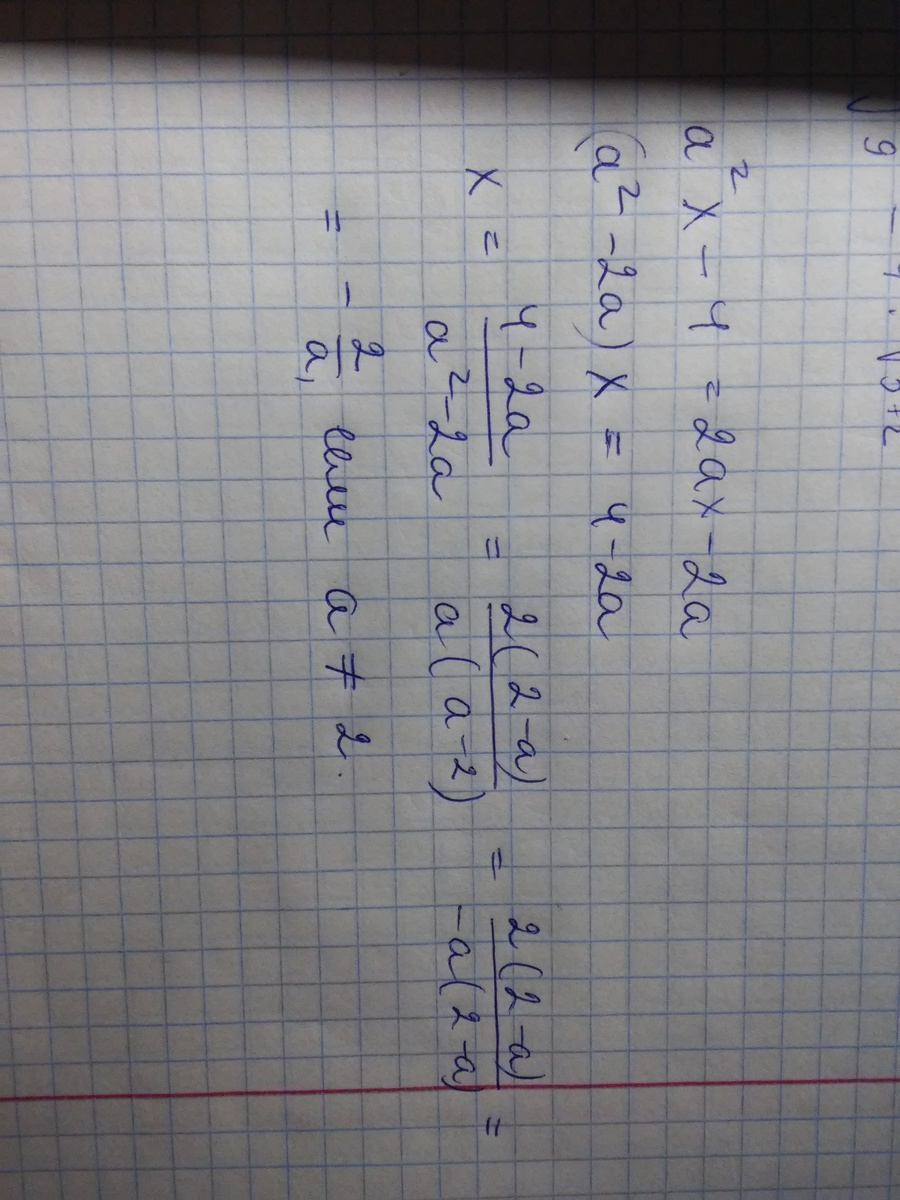 a² x - 4 = 2ax - 2a
(a² - 2a) x = 4 - 2a
x = \frac{4 - 2a}{a² - 2a} = \frac{2(2-a)}{a(a-2)} = \frac{2(2-a)}{-a(2-a)} =
= - \frac{2}{a}, если a ≠ 2.